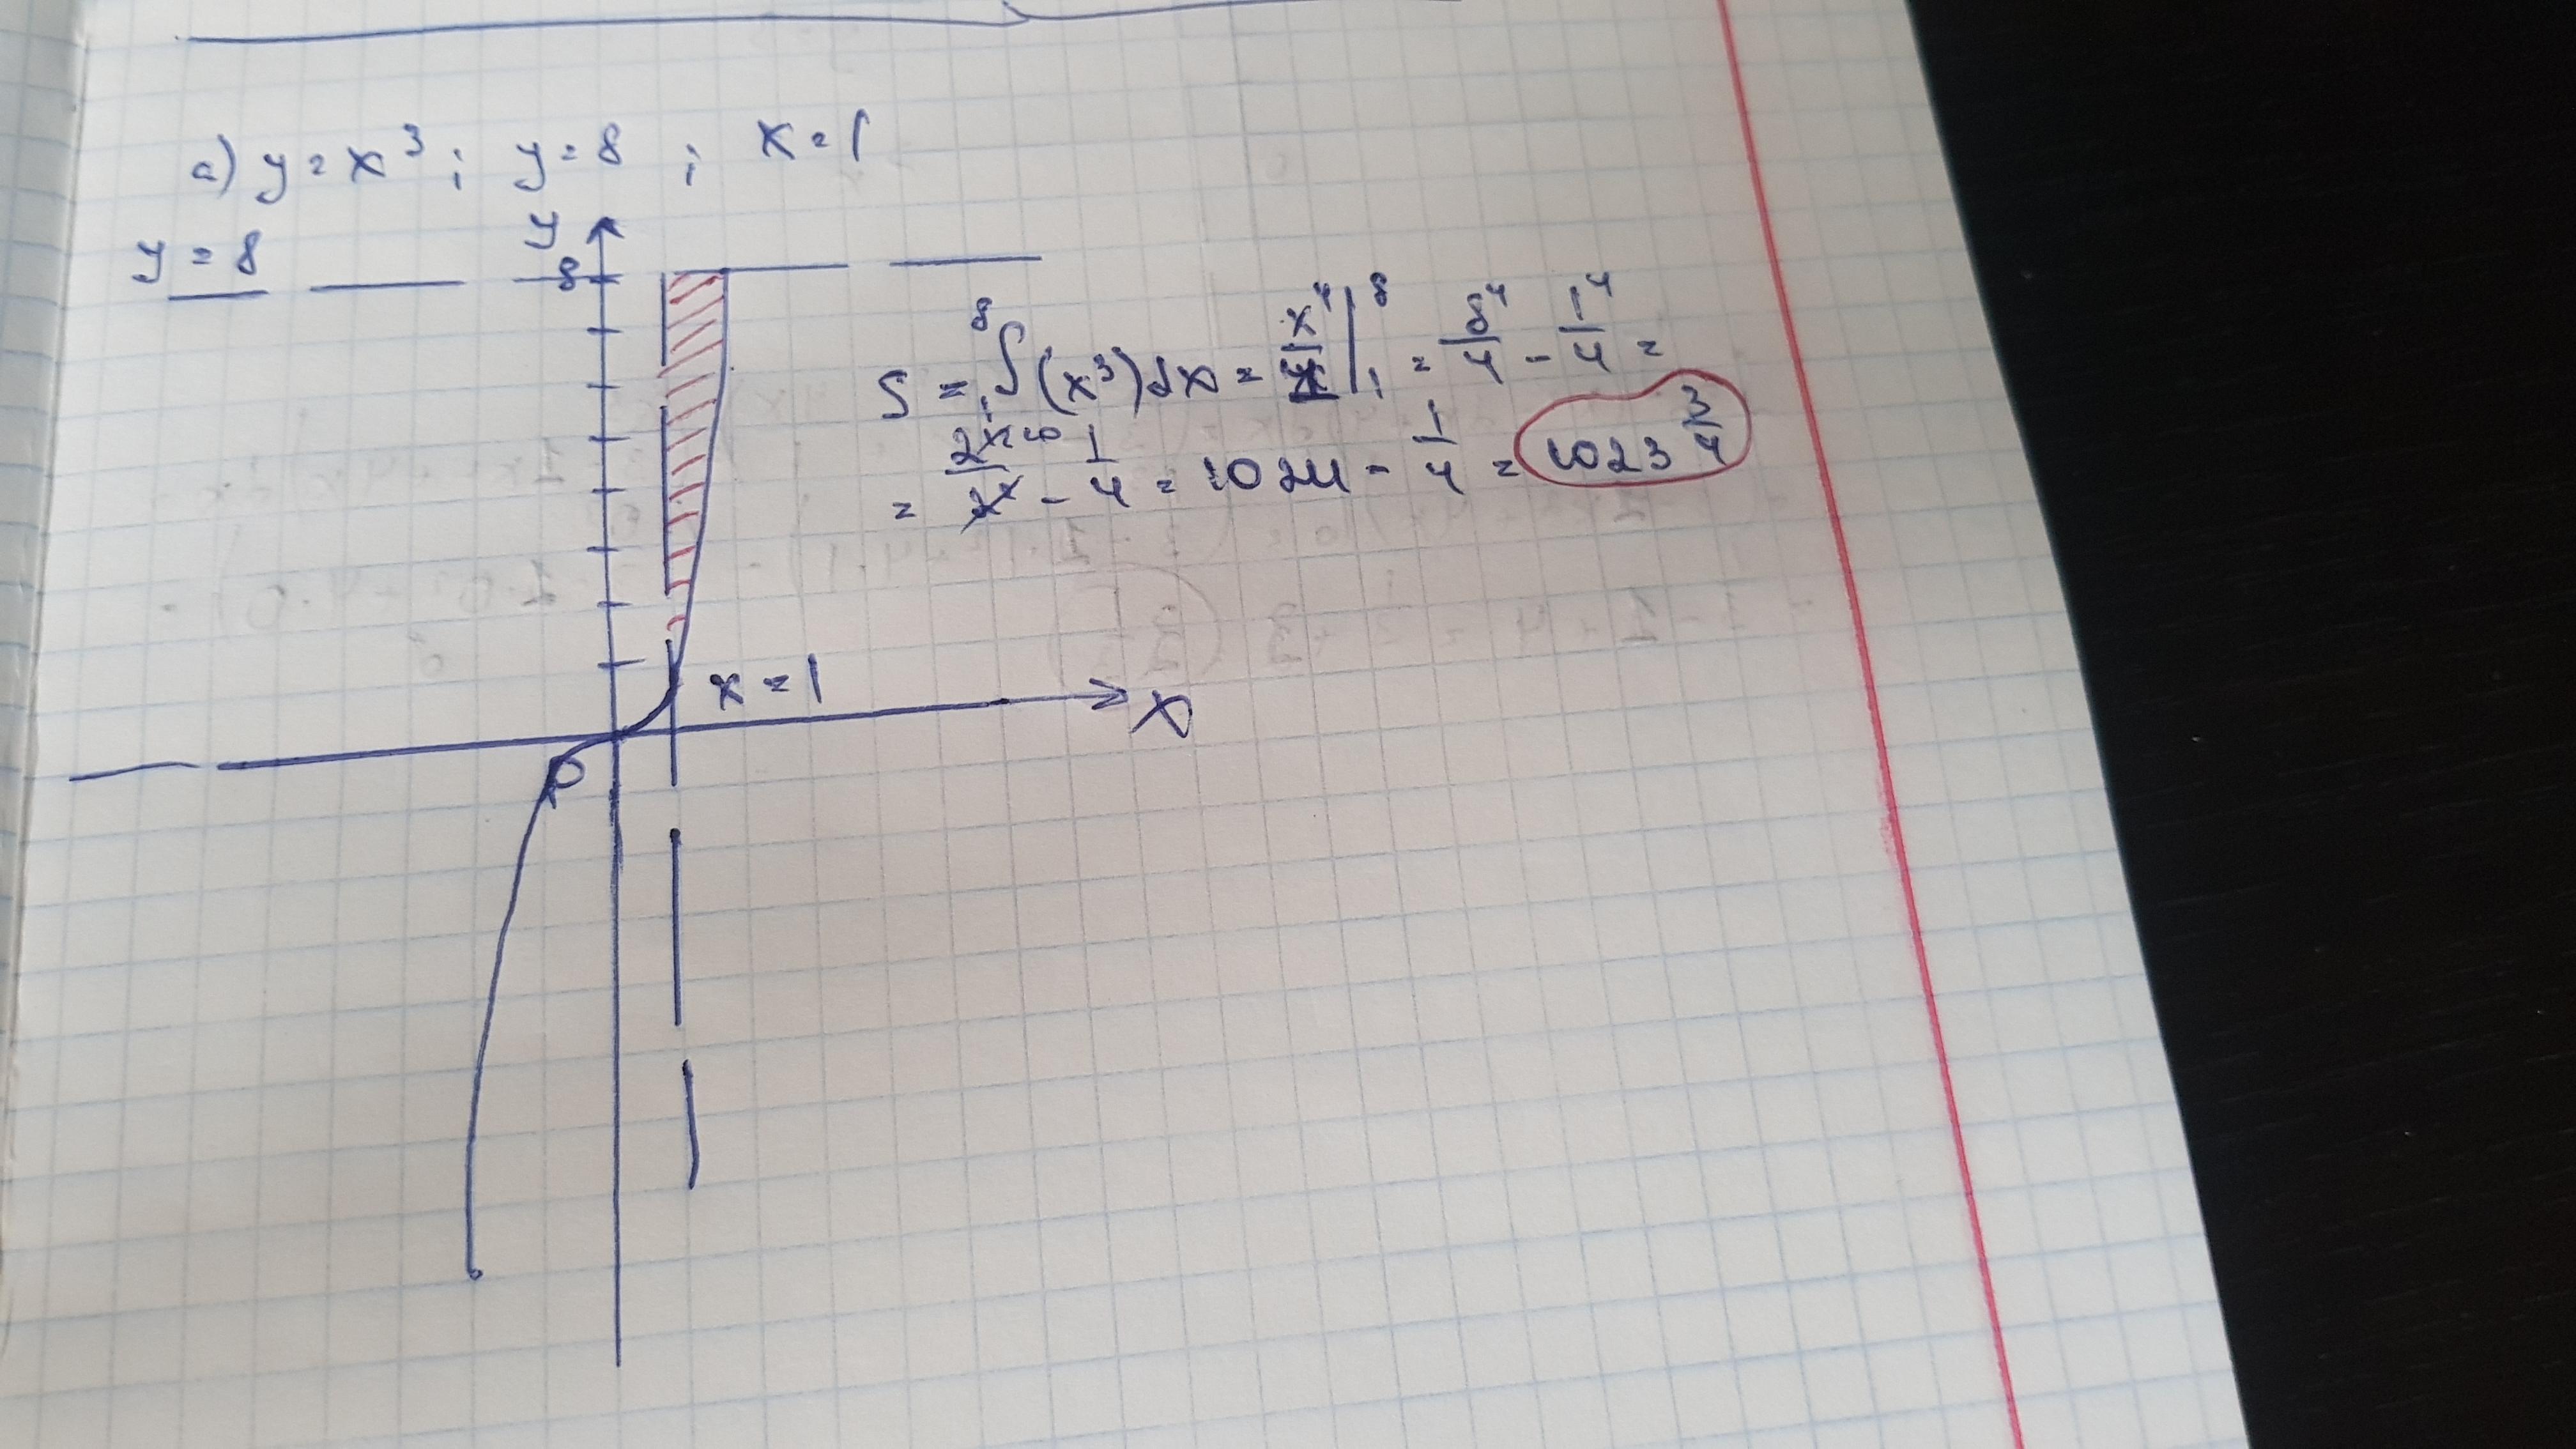 a) y = x³ ; y = 8 ; x = 1
y = 8
y
8
S = ₁∫⁸ (x³) dx = x⁴/4 |₁⁸ = 8⁴/4 - 1⁴/4 =
= 2¹²/2² - 1/4 = 1024 - 1/4 = 1023 3/4
x = 1
x
0